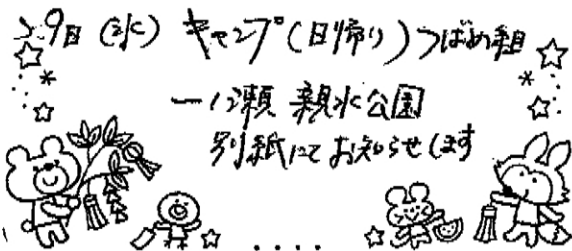 29日(水) キャンプ(日帰り)つばめ組
一の瀬 親水公園
別紙にてお知らせします